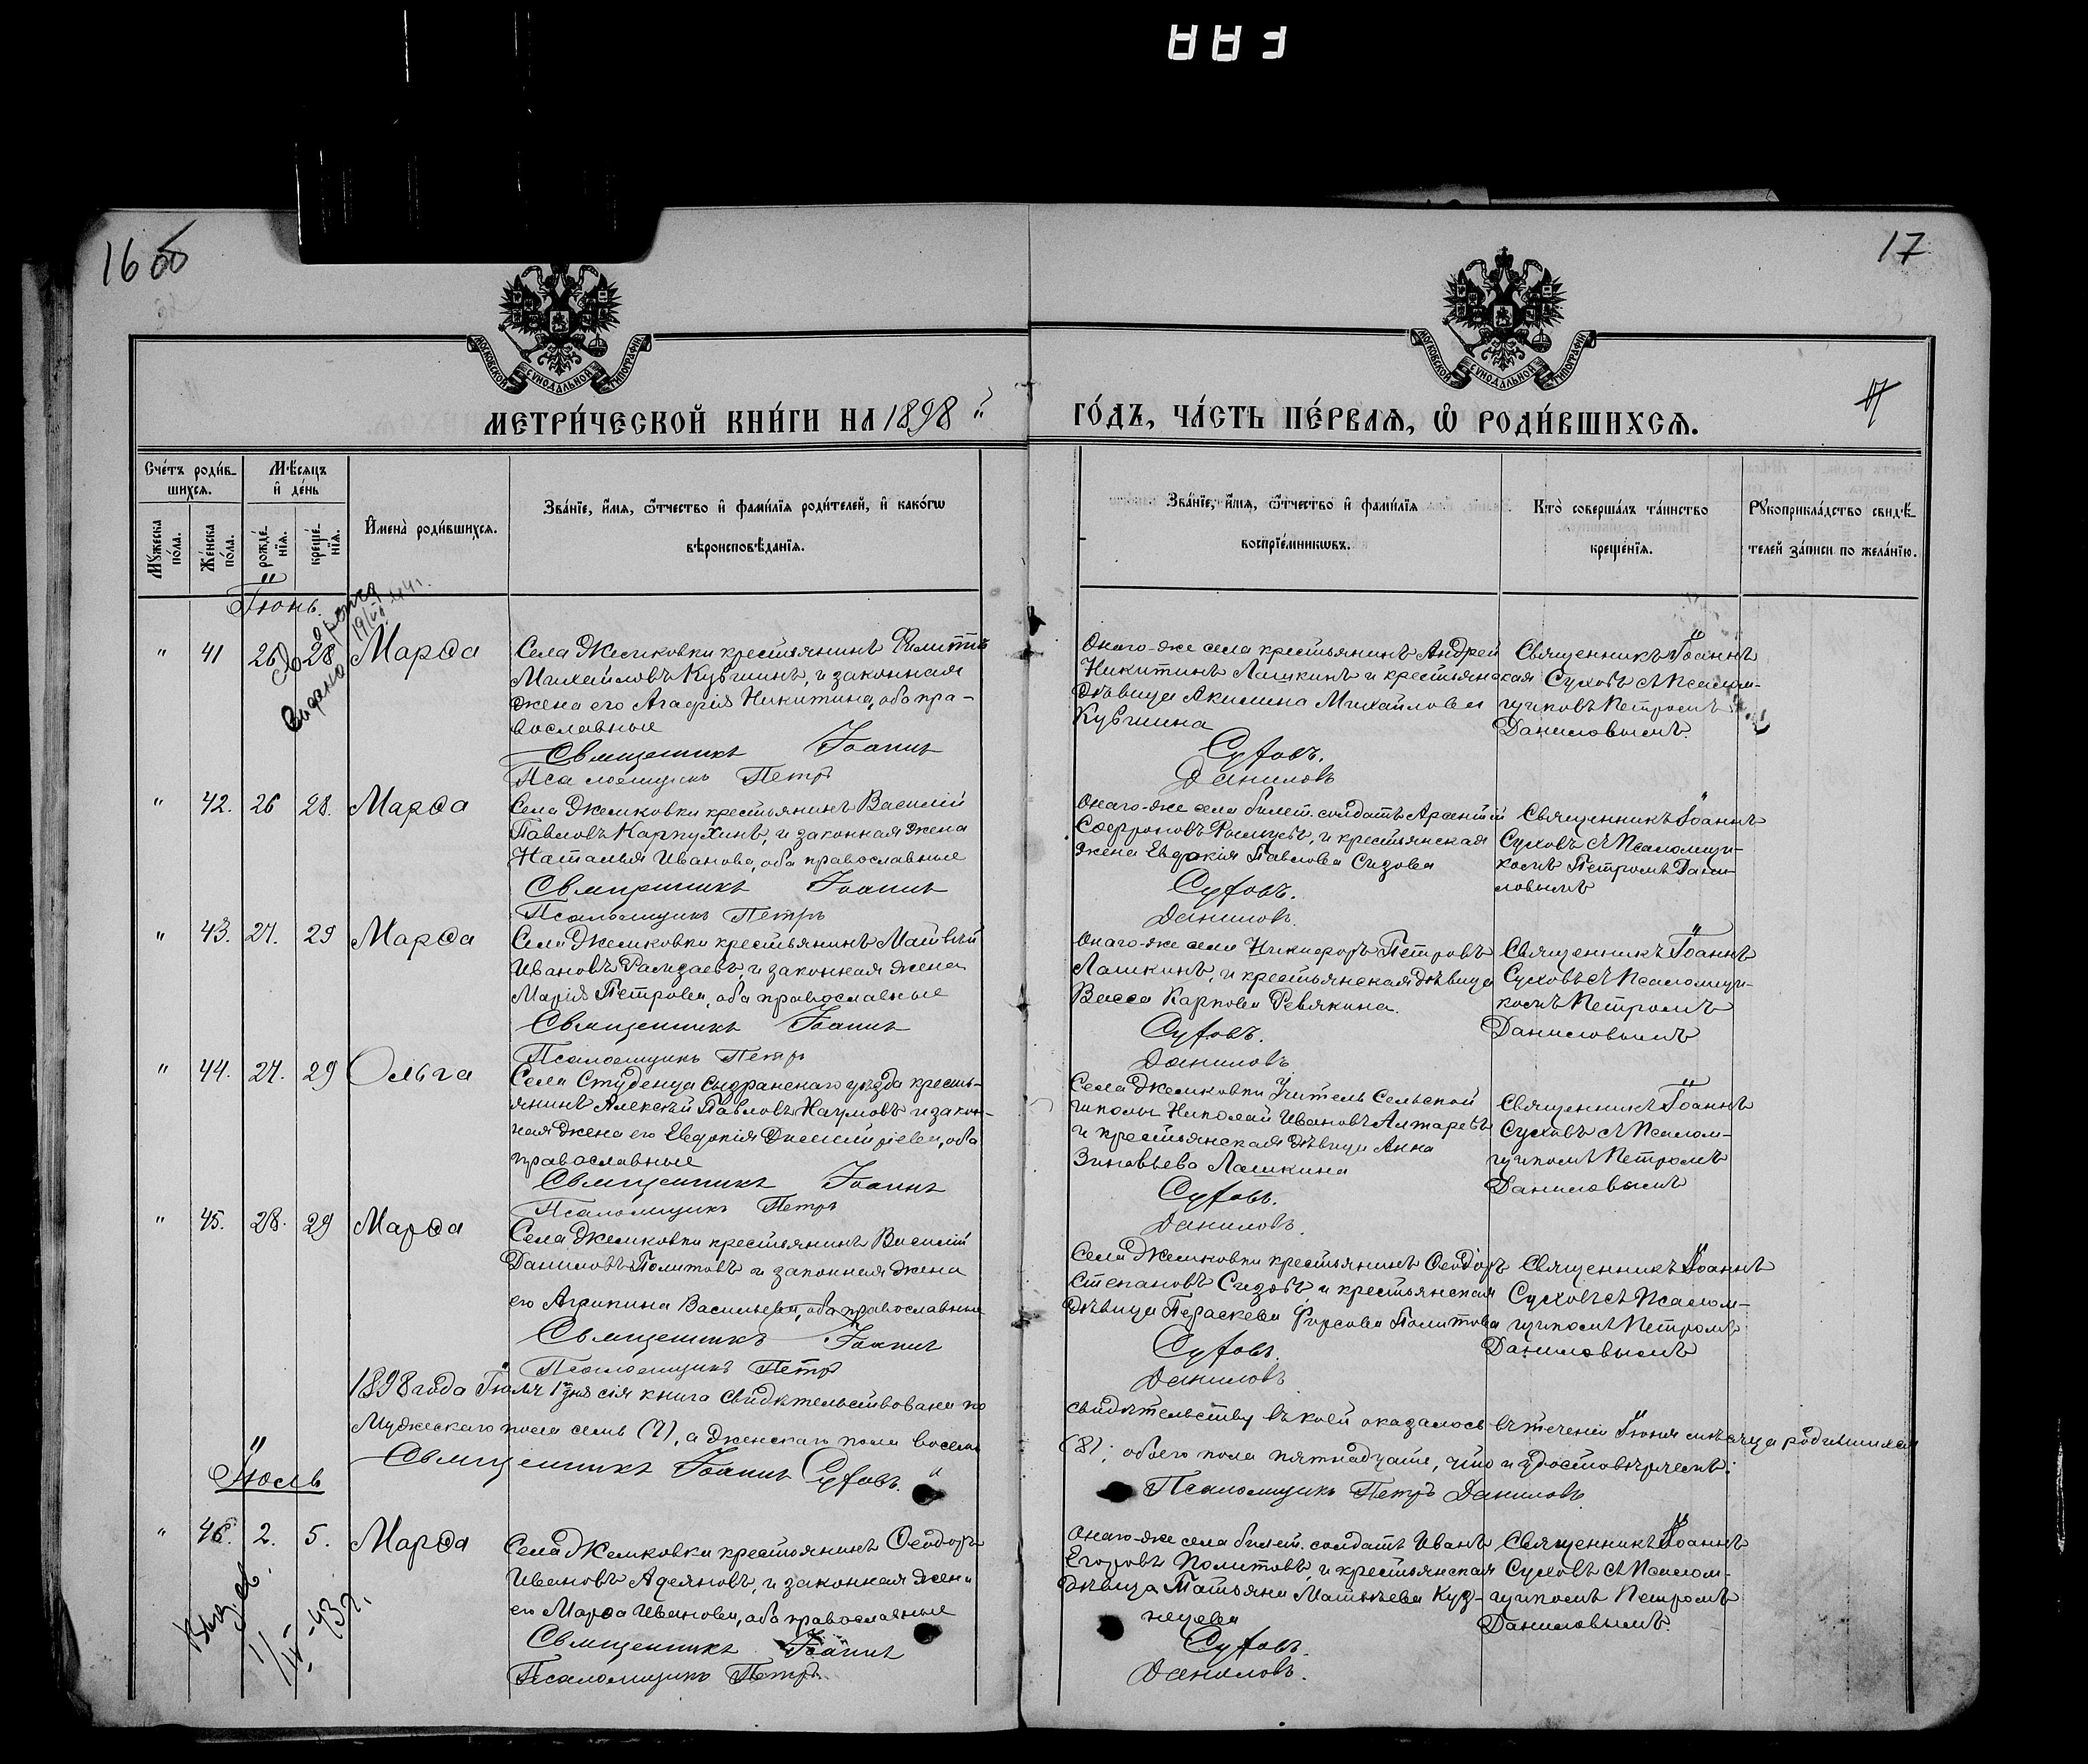 ААЗ
16 об
17
17
МОСКОВСКОЙ СѴНОДАЛЬНОЙ ТИПОГРАФІИ
МОСКОВСКОЙ СѴНОДАЛЬНОЙ ТИПОГРАФІИ
МЕТРИ́ЧЕСКОЙ КНИ́ГИ НА 1898 й
ГО́ДЪ, ЧА́СТЬ ПЕ́РВАѦ, Ѽ РОДИ́ВШИХСѦ.
Сче́тъ роди́в-
шихсѧ.
Мѣ́сѧцъ
и҆ де́нь
Мꙋ́жеска по́ла.
Же́нска по́ла.
рожде́-
нїѧ.
креще́-
нїѧ.
И҆мена̀ роди́вшихсѧ.
Зва́нїе, и҆́мѧ, ѻ҆́тчество и҆ фами́лїѧ роди́телей, и҆ како́гѡ
вѣроисповѣ́данїѧ.
Зва́нїе, и҆́мѧ, ѻ҆́тчество и҆ фами́лїѧ
воспрїе́мникѡвъ.
Кто̀ соверша́лъ та́инство
креще́нїѧ.
Рꙋкоприкла́дство свидѣ́-
телей за́писи по жела́нїю.
Іюнь.
Выдано
" 41 26 28 Марѳа
Села Жемковки крестьянинъ Филиппъ
Михайловъ Кувшинъ, и законная
жена его Агафія Никитина, оба пра-
вославные
Священникъ Іоаннъ
Псаломщикъ Петръ
Онаго-же села крестьянинъ Андрей
Никитинъ Лашкинъ и крестьянская
дѣвица Акилина Михайлова
Кувшина
Суховъ.
Даниловъ
Священникъ Іоаннъ
Суховъ съ Псалом-
щикомъ Петромъ
Даниловымъ.
" 42. 26 28. Марѳа
Села Жемковки крестьянинъ Василій
Павловъ Карпухинъ, и законная жена
Наталья Иванова, оба православные
Священникъ Іоаннъ
Псаломщикъ Петръ
Онаго-же села билет. солдатъ Арсентій
Софроновъ, и крестьянская
жена Евдокія Павлова Сизова
Суховъ.
Даниловъ.
Священникъ Іоаннъ
Суховъ съ Псаломщи-
комъ Петромъ Дани-
ловымъ
" 43. 27. 29 Марѳа
Села Жемковки крестьянинъ Матвѣй
Ивановъ Рамзаевъ, и законная жена
Марія Петрова, оба православные
Священникъ Іоаннъ
Псаломщикъ Петръ
Онаго-же села Никифоръ Петровъ
Лашкинъ, и крестьянская дѣвица
Васса Карпова Ревякина.
Суховъ.
Даниловъ.
Священникъ Іоаннъ
Суховъ съ Псаломщи-
комъ Петромъ
Даниловымъ
" 44. 27. 29 Ольга
Села Студенца Сызранскаго уѣзда кресть-
янинъ Алексѣй Павловъ Наумовъ и закон-
ная жена его Евдокія Дмитріева, оба
православные
Священникъ Іоаннъ
Псаломщикъ Петръ
Села Жемковки Учитель Сельской
школы Николай Ивановъ Алтаревъ
и крестьянская дѣвица Анна
Зиновьева Лашкина
Суховъ.
Даниловъ.
Священникъ Іоаннъ
Суховъ съ Псалом-
щикомъ Петромъ
Даниловымъ
" 45. 28. 29 Марѳа
Села Жемковки крестьянинъ Василій
Даниловъ Политовъ и законная жена
его Агрипина Васильева, оба православные
Священникъ Іоаннъ
Псаломщикъ Петръ
Села Жемковки крестьянинъ Ѳеодоръ
Степановъ Сизовъ, и крестьянская
дѣвица Параскева Фирсова Политова
Суховъ.
Даниловъ
Священникъ Іоаннъ
Суховъ съ Псалом-
щикомъ Петромъ
Даниловымъ
1898 года Іюля 1 дня сія книга свидѣтельствована по
свидѣтельству въ коей оказалось въ теченіи Іюня мѣсяца родившихся
Мужескаго пола семь (7), а женскаго пола восемь
(8); обоего пола пятнадцать, что и удостовѣряемъ:
Священникъ Іоаннъ Суховъ.
Псаломщикъ Петръ Даниловъ.
Іюль
" 46. 2. 5. Марѳа
Села Жемковки крестьянинъ Ѳеодоръ
Ивановъ Адеяновъ, и законная жена
его Марѳа Иванова, оба православные
Священникъ Іоаннъ
Псаломщикъ Петръ.
Онаго-же села билет. солдатъ Иванъ
Егоровъ Политовъ, и крестьянская
дѣвица Татьяна Матвѣева Куз-
нецова
Суховъ.
Даниловъ.
Священникъ Іоаннъ
Суховъ съ Псалом-
щикомъ Петромъ
Даниловымъ.
43 г.